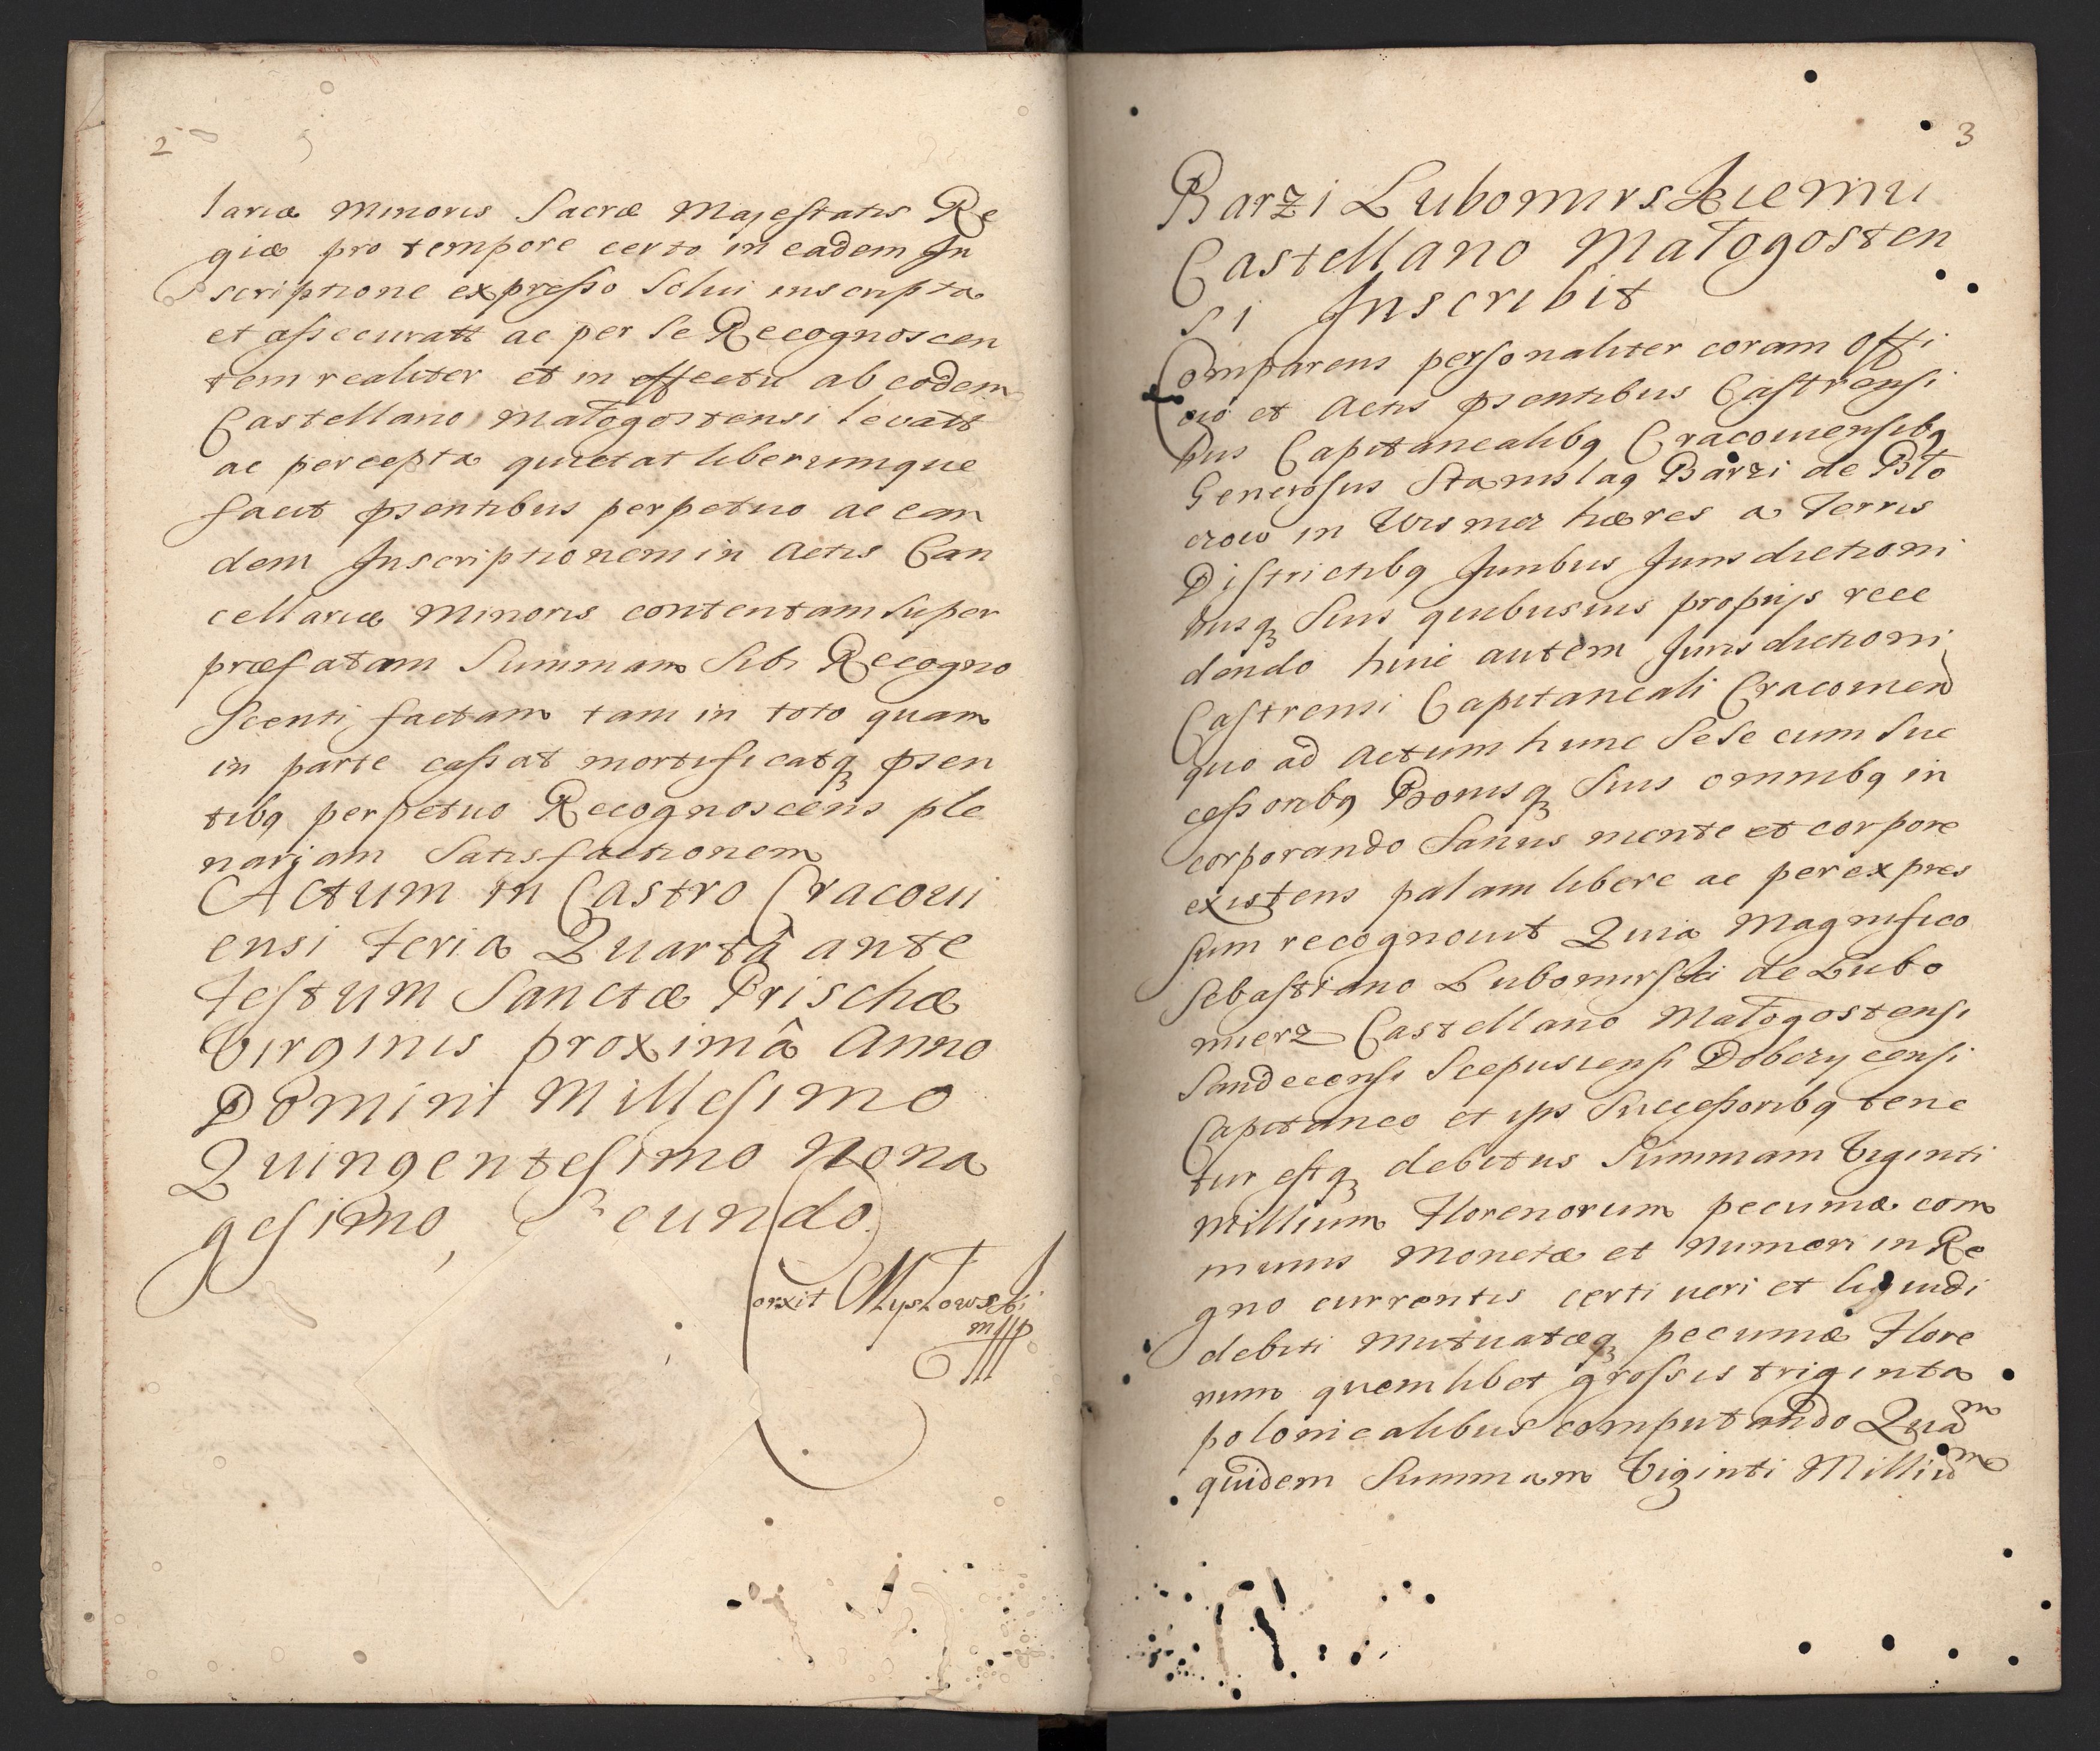 2
lariæ Minoris Sacræ Majestatis Re
giæ pro tempore certo in eadem In
scriptione expresso Solui inscripta
et assecuratt ac per Se Recognoscen
tem realiter et in effectu ab eodem
Castellano Małogostensi levatt
ac percepta quietat liberumque
facit pſentibus perpetuo ac ean
dem Inscriptionem in Actis Can
cellariæ Minoris contentam Super
præfatam Summam Sibi Recogno
scenti factam tam in toto quam
in parte cassat mortificatq pſen
tibq perpetuo Recognoscens ple
nariam Satisfactionem
Actum in Castro Cracovi
ensi Feria Quartâ ante
Festum Sanctæ Prischæ
Virginis proximâ Anno
Domini Millesimo
Quingentesimo Nona
gesimo Secundo
Correxit Myszowski
mpp
3
Barzi Lubomirskiemu
Castellano Małogosten
si Inscribit
Comparens personaliter coram Offi
cio et Actis pſentibus Castrensi
bus Capitanealibq Cracouiensibq
Generosus Stanislaq Barzi de Bło
zow in Wismicz hæres a Terris
Districtibq Juribus Jurisdictioni
busq Suis quibusuis proprijs rece
dendo huic autem Jurisdictioni
Castrensi Capitaneali Cracouien
quo ad Actum hunc Sese cum Suc
cessoribq Bonisq Suis omnibq in
corporando Sanus mente et corpore
existens palam libere ac per expres
sum recognouit Quia Magnifico
Sebastiano Lubomirski de Lubo
mierz Castellano Małogostensi
Sandecensi Scepusiensi Dobczycensi
Capitaneo et ips Successoribq tene
tur estq debitus Summam Viginti
Millium Florenorum pecuniæ com
munis Monetæ et Numeri in Re
gno currentis certi ueri et liquidi
debiti Mutuatæq pecuniæ Flore
num quemlibet grossis triginta
polonicalibus computando Quam
quidem Summam Viginti Millium